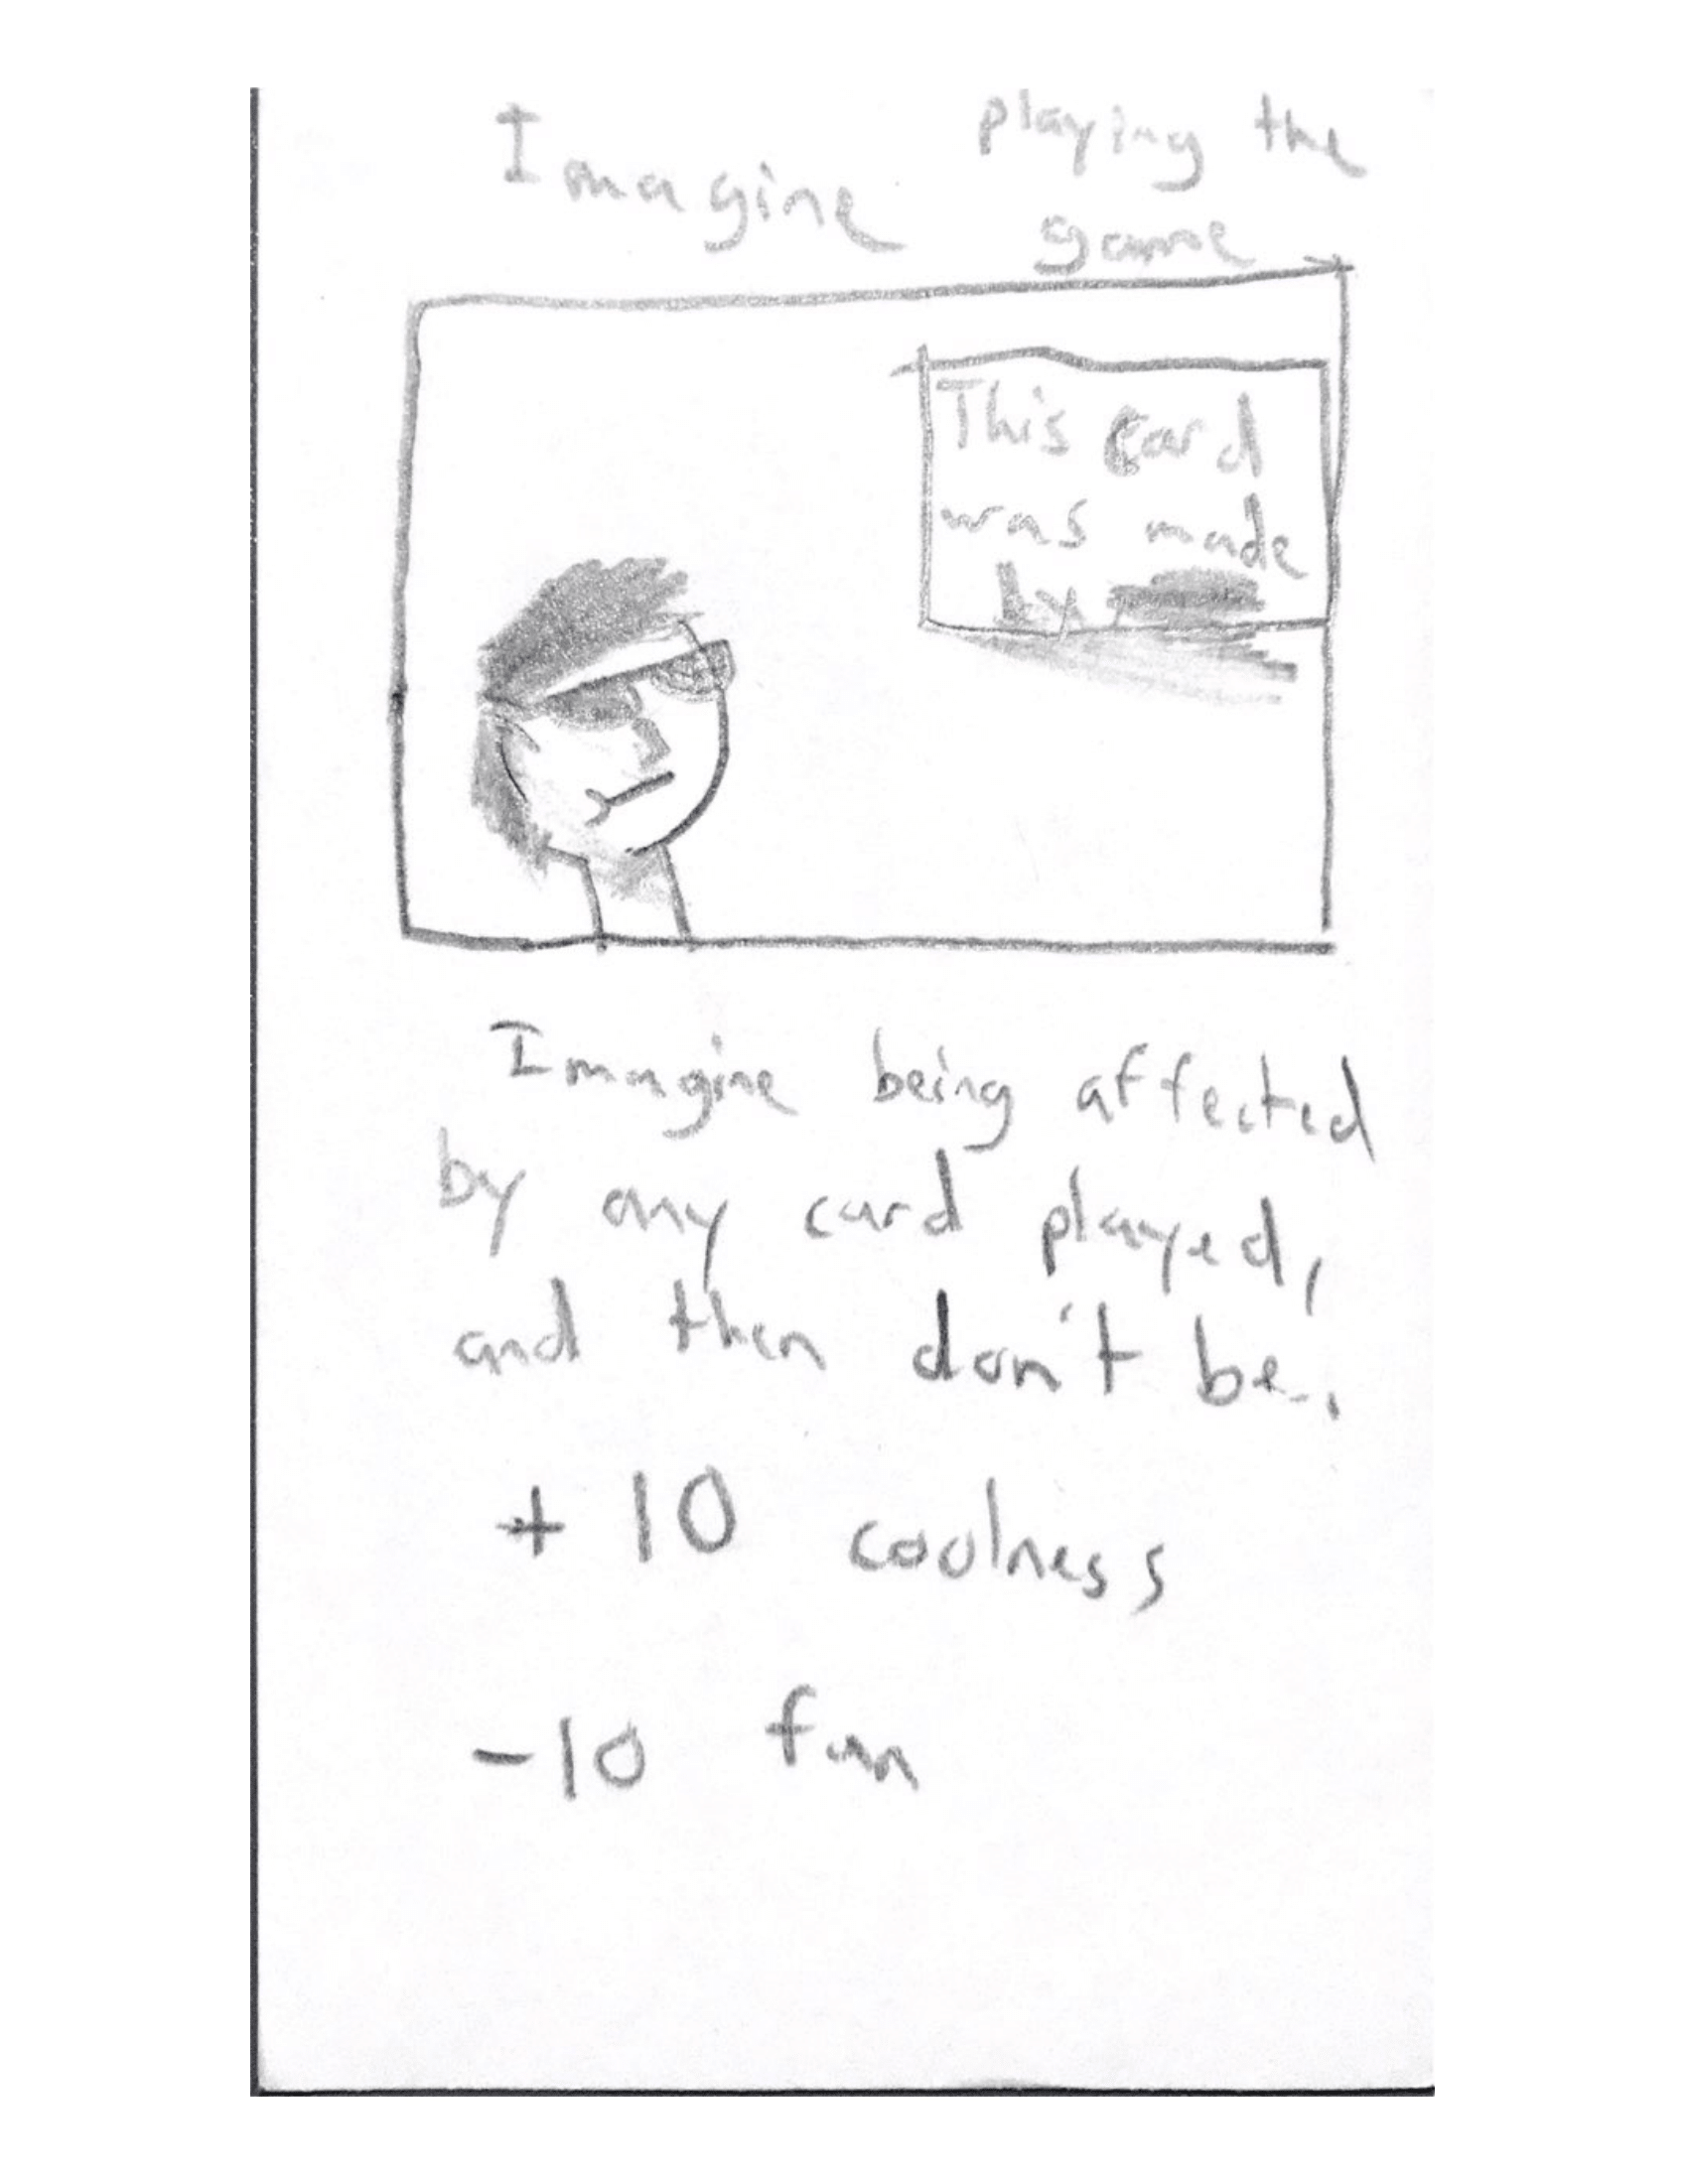 Imagine playing the
game
This card
was made
by
Imagine being affected
by any card played,
and then don't be.
+ 10 coolness
-10 fun